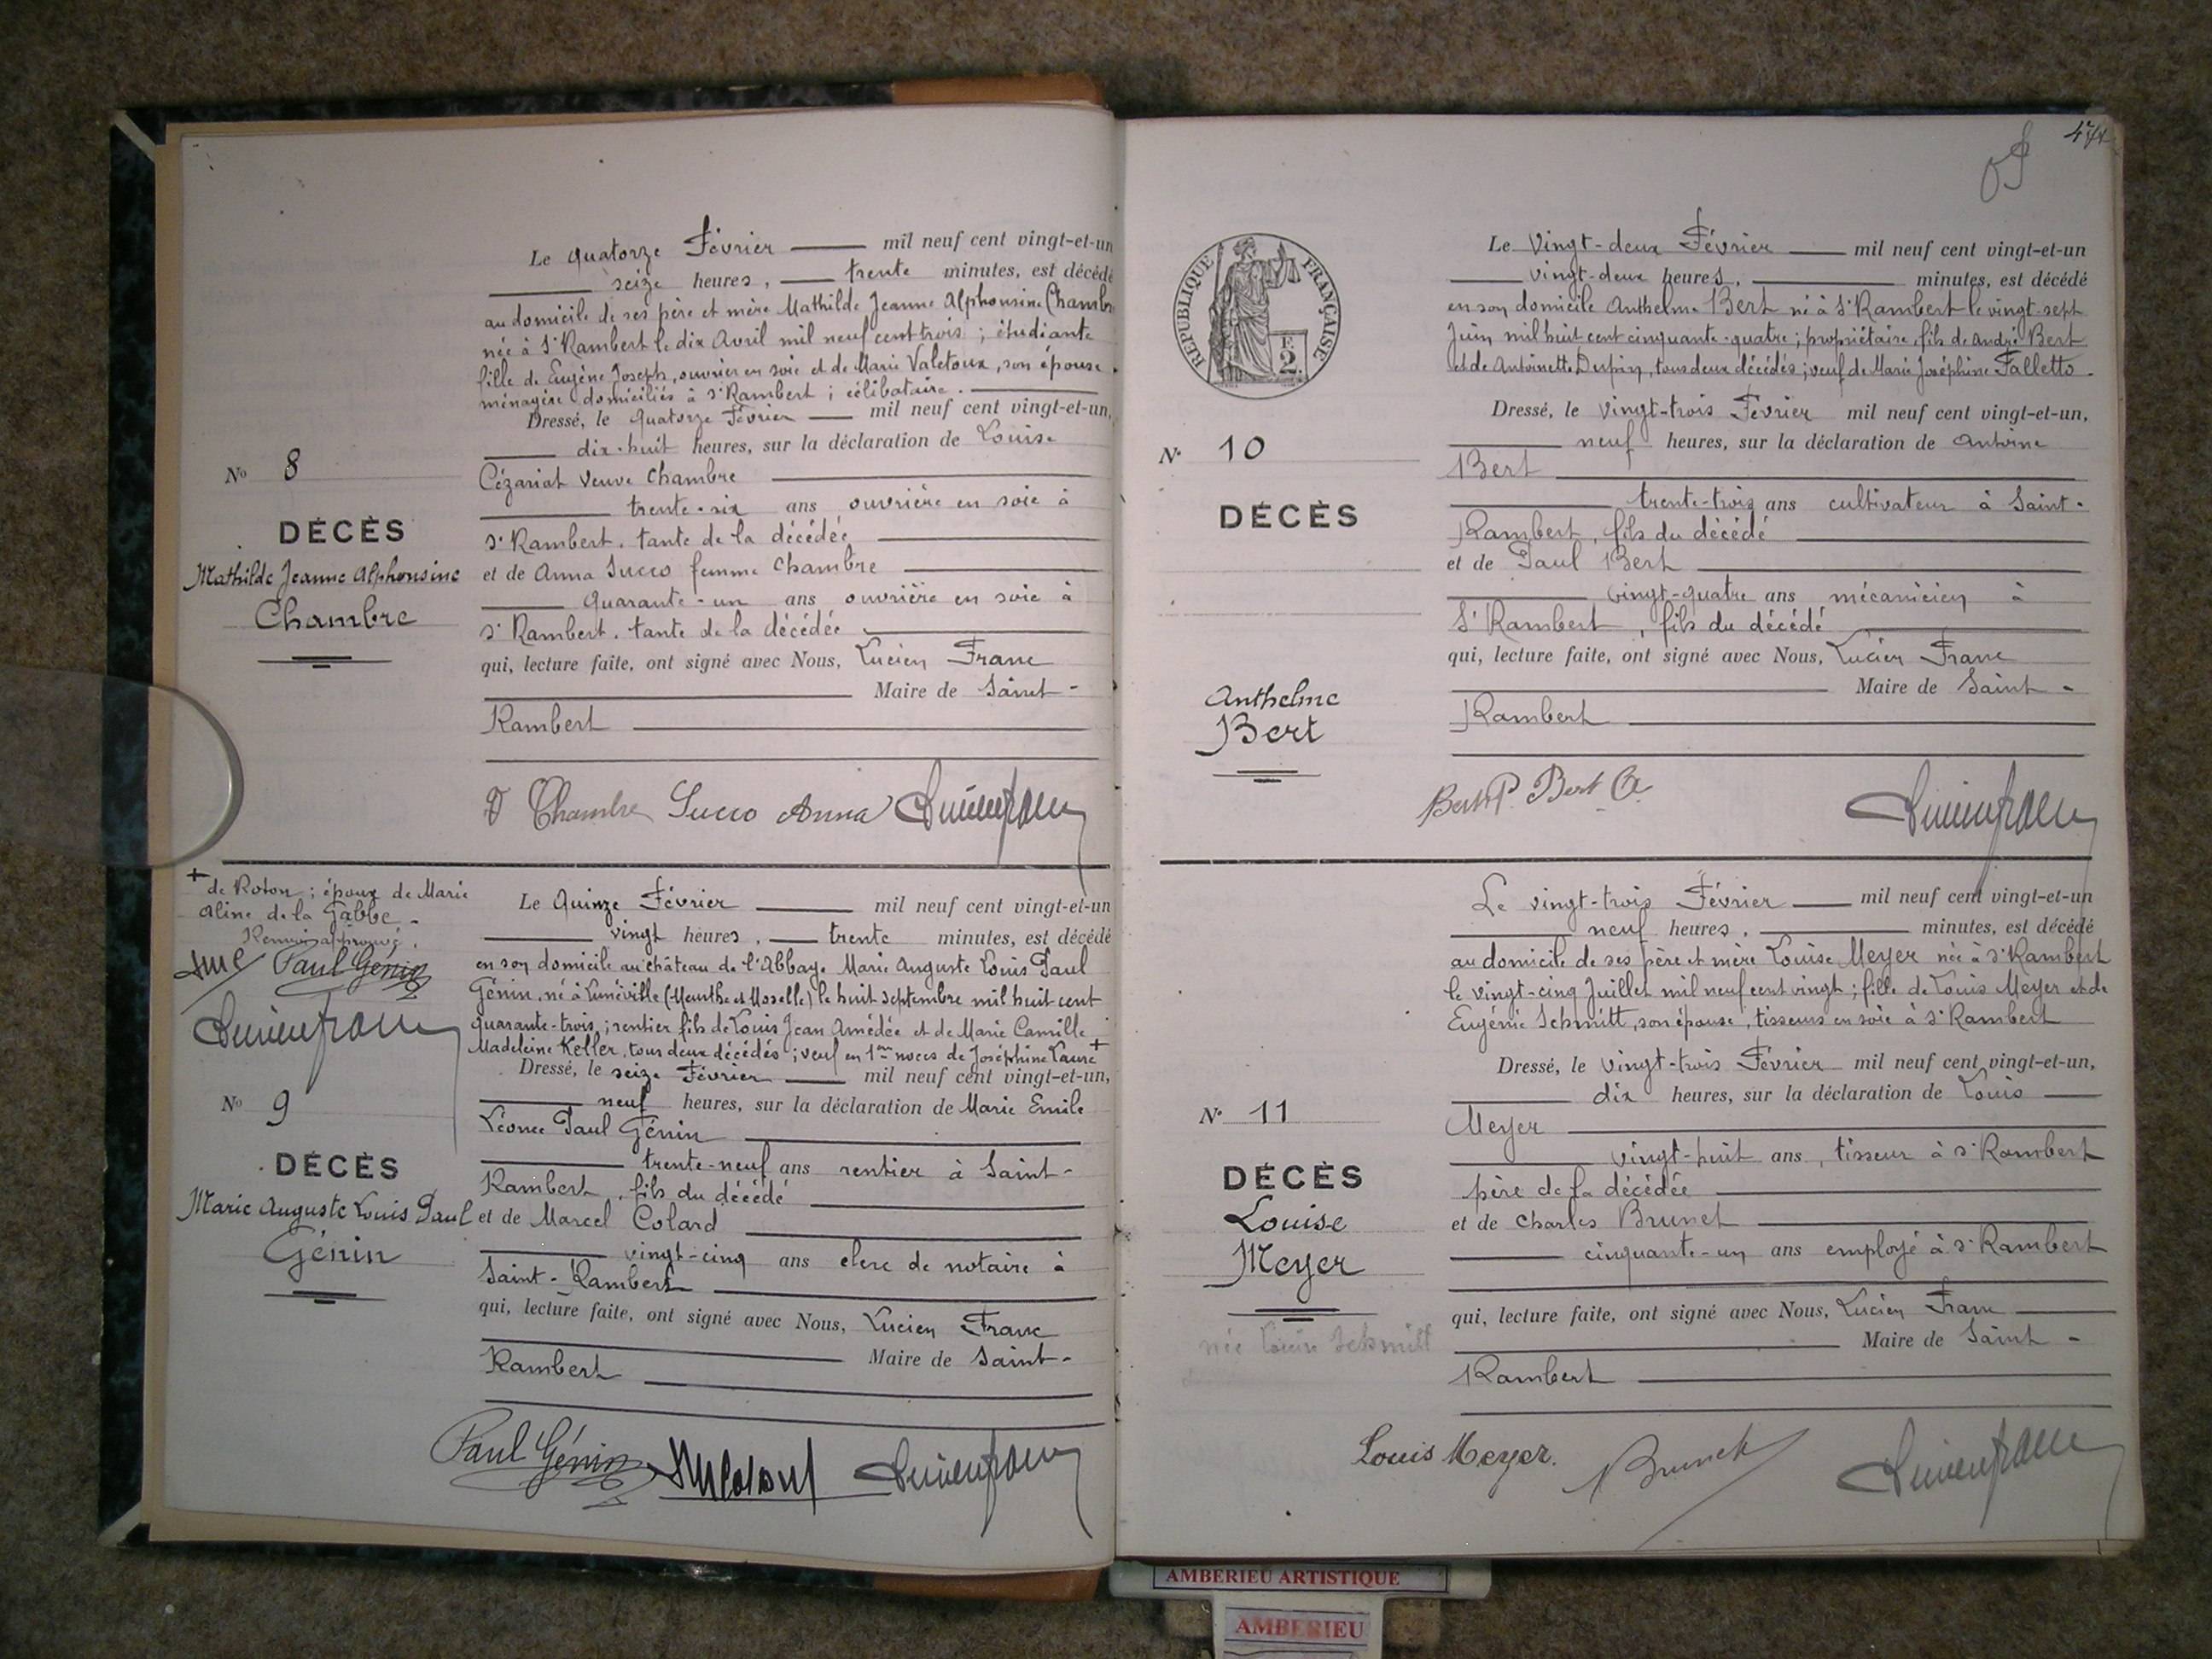 Le quatorze Février mil neuf cent vingt-et-un
seize heures, trente minutes, est décédé
au domicile de ses père et mère Mathilde Jeanne Alphonsine Chambre
née à St Rambert le dix Avril mil neuf cent trois ; étudiante
fille de Eugène Joseph, ouvrier en soie et de Marie Valetoux, son épouse
ménagère domiciliés à St Rambert ; célibataire.
Dressé, le quatorze Février mil neuf cent vingt-et-un,
dix-huit heures, sur la déclaration de Louise
Cézariat veuve Chambre
trente-six ans ouvrière en soie à
St Rambert. tante de la décédée
et de Anna Succo femme Chambre
quarante-un ans ouvrière en soie à
St Rambert. tante de la décédée
qui, lecture faite, ont signé avec Nous, Lucien Franc
Maire de Saint-
Rambert
No 8
DÉCÈS
Mathilde Jeanne Alphonsine
Chambre
Chambre Succo Anna Lucien Franc
+ de Roton ; époux de Marie
Aline de la Gabbe.
Renvoi approuvé.
Paul Génin
Lucien Franc
Le Quinze Février mil neuf cent vingt-et-un
vingt heures, trente minutes, est décédé
en son domicile au château de l'Abbaye Marie Auguste Louis Paul
Génin, né à Lunéville (Meurthe et Moselle) le huit septembre mil huit cent
quarante-trois ; rentier fils de Louis Jean Amédée et de Marie Camille
Madeleine Keller, tous deux décédés ; veuf en 1ères noces de Joséphine Laure +
Dressé, le seize Février mil neuf cent vingt-et-un,
neuf heures, sur la déclaration de Marie Emile
Léonce Paul Génin
trente-neuf ans rentier à Saint-
Rambert, fils du décédé
et de Marcel Colard
vingt-cinq ans clerc de notaire à
Saint-Rambert
qui, lecture faite, ont signé avec Nous, Lucien Franc
Maire de Saint-
Rambert
No 9
DÉCÈS
Marie Auguste Louis Paul
Génin
Paul Génin MColard Lucien Franc
474
RÉPUBLIQUE FRANÇAISE
F
2.
Le Vingt-deux Février mil neuf cent vingt-et-un
vingt-deux heures, minutes, est décédé
en son domicile Anthelme Bert né à St Rambert le vingt-sept
Juin mil huit cent cinquante-quatre ; propriétaire, fils de André Bert
et de Antoinette, tous deux décédés ; veuf de Marie Joséphine Falletto.
Dressé, le vingt-trois Février mil neuf cent vingt-et-un,
neuf heures, sur la déclaration de Antoine
Bert
trente-trois ans cultivateur à Saint-
Rambert, fils du décédé
et de Paul Bert
vingt-quatre ans mécanicien à
St Rambert, fils du décédé
qui, lecture faite, ont signé avec Nous, Lucien Franc
Maire de Saint-
Rambert
No 10
DÉCÈS
Anthelme
Bert
Bert P. Bert A. Lucien Franc
Le vingt-trois Février mil neuf cent vingt-et-un
neuf heures, minutes, est décédé
au domicile de ses père et mère Louise Meyer née à St Rambert
le vingt-cinq Juillet mil neuf cent vingt ; fille de Louis Meyer et de
Eugénie Schmitt, son épouse, tisseurs en soie à St Rambert
Dressé, le vingt-trois Février mil neuf cent vingt-et-un,
dix heures, sur la déclaration de Louis
Meyer
vingt-huit ans, tisseur à St Rambert
père de la décédée
et de Charles Brunet
cinquante-un ans employé à St Rambert
qui, lecture faite, ont signé avec Nous, Lucien Franc
Maire de Saint-
Rambert
No 11
DÉCÈS
Louise
Meyer
née Louise Schmitt
Louis Meyer. Brunet Lucien Franc
AMBERIEU ARTISTIQUE
AMBERIEU